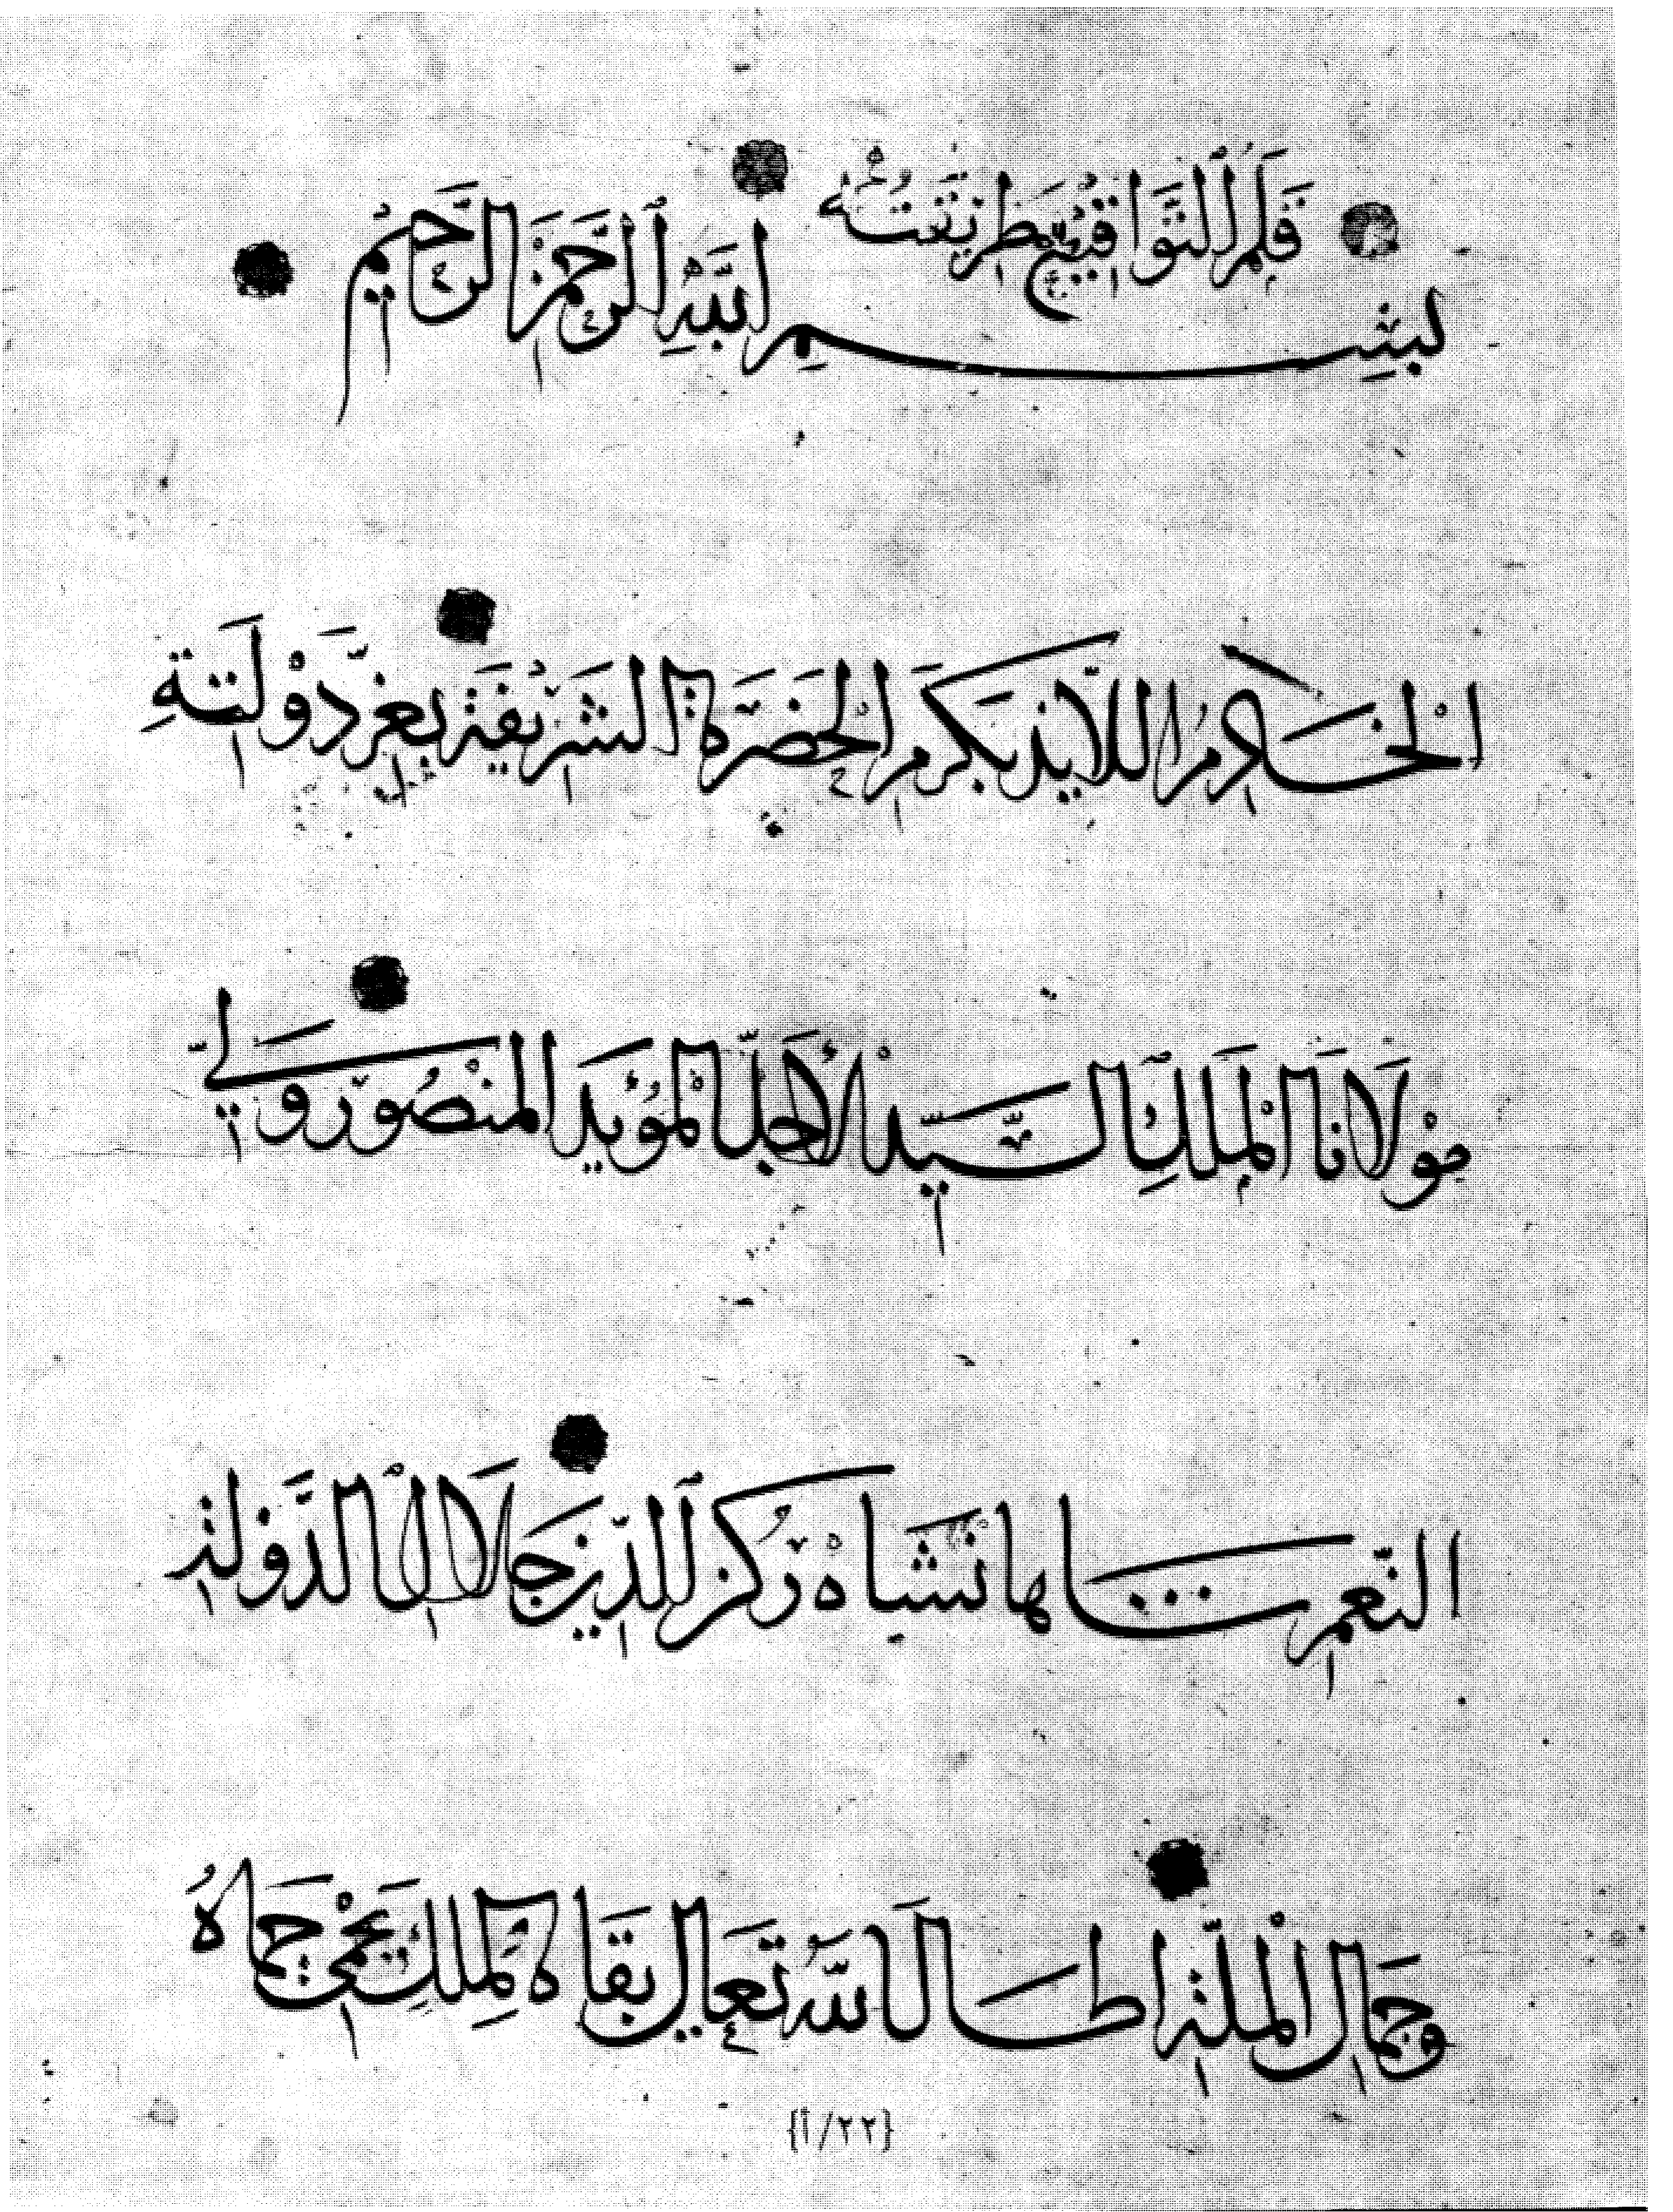 قَلَمُ التَّوَاقِيعِ طَرِيقَتُهُ
بِسْمِ اللَّهِ الرَّحْمَنِ الرَّحِيمِ
اللايذ بكرم الحَضْرَة الشَرِيفَة بعزّ دَوْلَتِهِ
مَوْلَانَا الْمَلِكِ السَّيِّد الأَجَلّ الْمُؤيد المنْصُور وَلِيّ
النّعم شَاهانْشَاهْ رُكن الدّين جَلَال الدَّولة
وَجَمَال الْمِلّة اطَال اللَّه تَعَالى بقَاه لِمُلكٍ يَحْمي حِمَاهُ
{٢٢/أ}